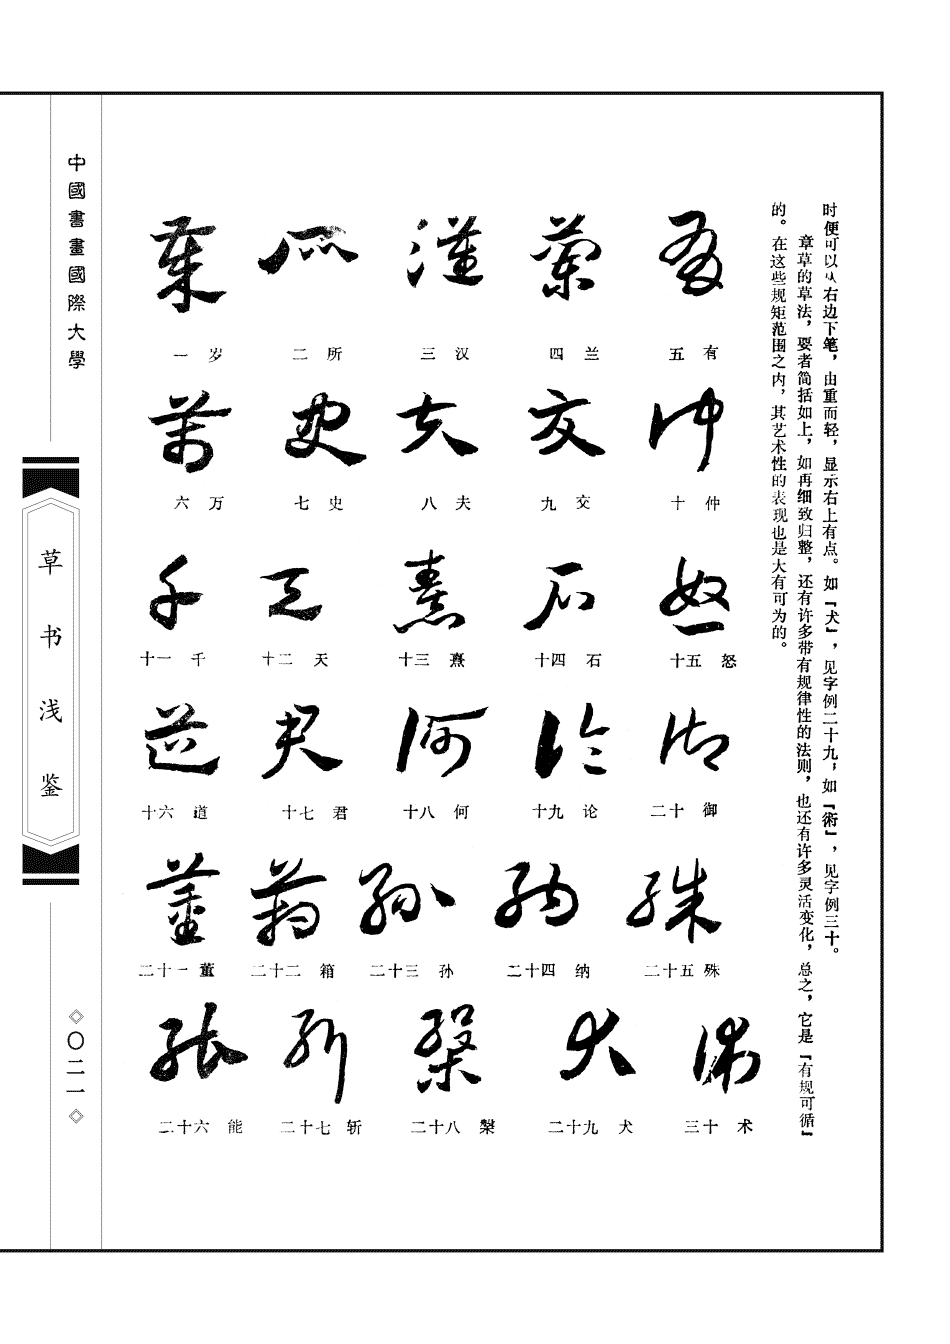 时便可以从右边下笔，由重而轻，显示右上有点。如『犬』，见字例二十九；如『術』，见字例三十。
章草的草法，要者简括如上，如再细致归整，还有许多带有规律性的法则，也还有许多灵活变化，总之，它是『有规可循』
的。在这些规矩范围之内，其艺术性的表现也是大有可为的。
一 岁
二 所
三 汉
四 兰
五 有
六 万
七 史
八 夫
九 交
十 仲
十一 千
十二 天
十三 熹
十四 石
十五 怒
十六 道
十七 君
十八 何
十九 论
二十 御
二十一 董
二十二 箱
二十三 孙
二十四 纳
二十五 殊
二十六 能
二十七 斩
二十八 槃
二十九 犬
三十 术
中國書畫國際大學
草书浅鉴
〇二一